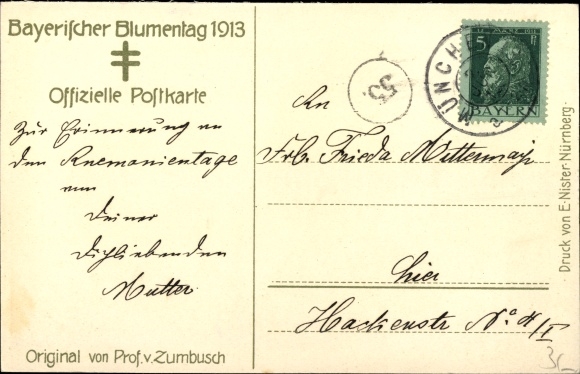 Bayerischer Blumentag 1913
Offizielle Postkarte
Zur Erinnerung an
den Anemonientage
von
Deiner
Dichliebenden
Mutter.
Original von Prof. v. Zumbusch
55
MÜNCHEN
2
5 Pf
BAYERN
An
Frl. Frieda Mittermayr
hier
Hackenstr Nº 4/I
Druck von E. Nister-Nürnberg.